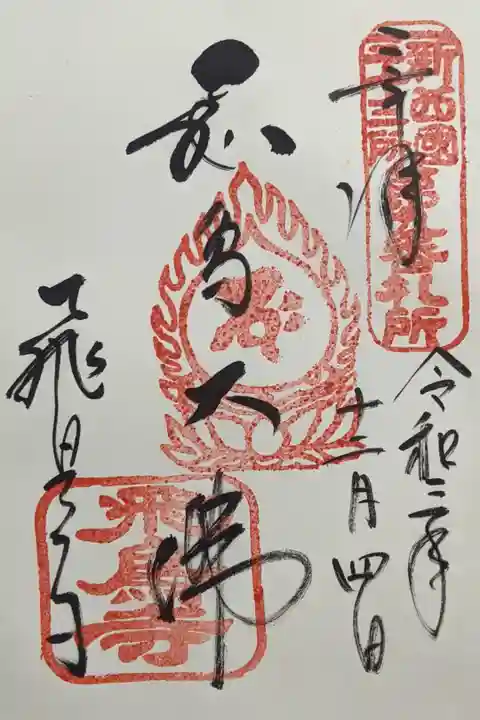 新西國
三十三所
第九番札所
奉拝
令和二年
十二月四日
飛鳥大佛
飛鳥寺
飛鳥寺